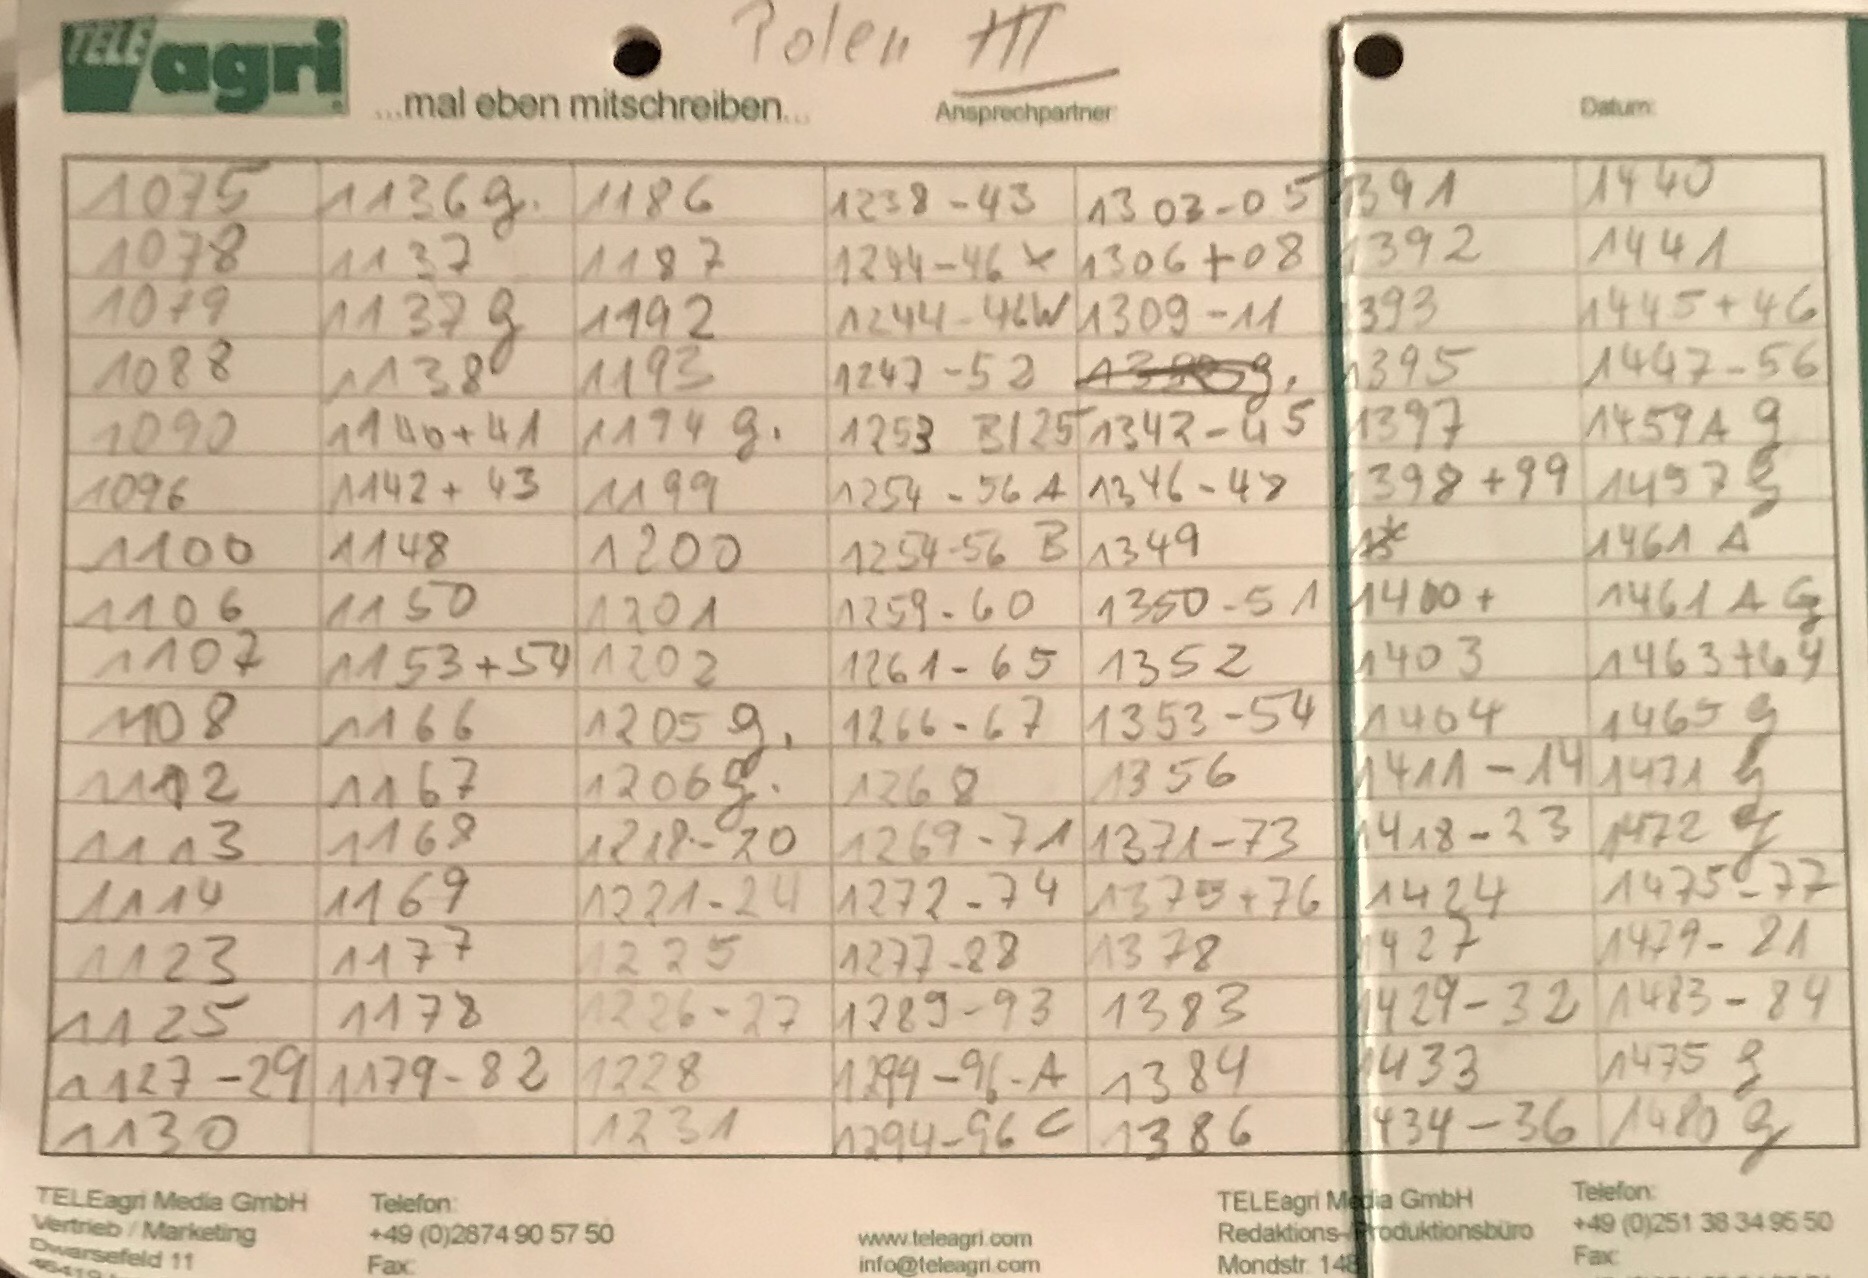 TELE agri Polen III
...mal eben mitschreiben... Ansprechpartner: Datum:
1075 1136 g. 1186 1238-43 1303-05 1391 1440
1078 1137 1187 1244-46 x 1306+08 1392 1441
1079 1137 g 1192 1244-46W 1309-11 1393 1445+46
1088 1138 1193 1247-52 g. 1395 1447-56
1090 1140+41 1194 g. 1253 Bl25 1342-45 1397 1459A g
1096 1142+43 1199 1254-56 A 1346-48 1398+99 1457 g
1100 1148 1200 1254-56 B 1349 1461 A
1106 1150 1201 1259-60 1350-51 1400+ 1461 A G
1107 1153+54 1202 1261-65 1352 1403 1463+64
1108 1166 1205 g. 1266-67 1353-54 1404 1465 g
1112 1167 1206 g. 1268 1356 1411-14 1471 g
1113 1168 1218-20 1269-71 1371-73 1418-23 1472 g
1114 1169 1221-24 1272-74 1375+76 1424 1475-77
1123 1177 1225 1277-88 1378 1427 1479-81
1125 1178 1226-27 1289-93 1383 1429-32 1483-84
1127-29 1179-82 1228 1294-96-A 1384 1433 1475 g
1130 1231 1294-96 C 1386 1434-36 1480 g
TELEagri Media GmbH Telefon: TELEagri Media GmbH Telefon:
Vertrieb / Marketing +49 (0)2874 90 57 50 www.teleagri.com Redaktions- Produktionsbüro +49 (0)251 38 34 95 50
Dwarsefeld 11 Fax: info@teleagri.com Mondstr. 148 Fax: